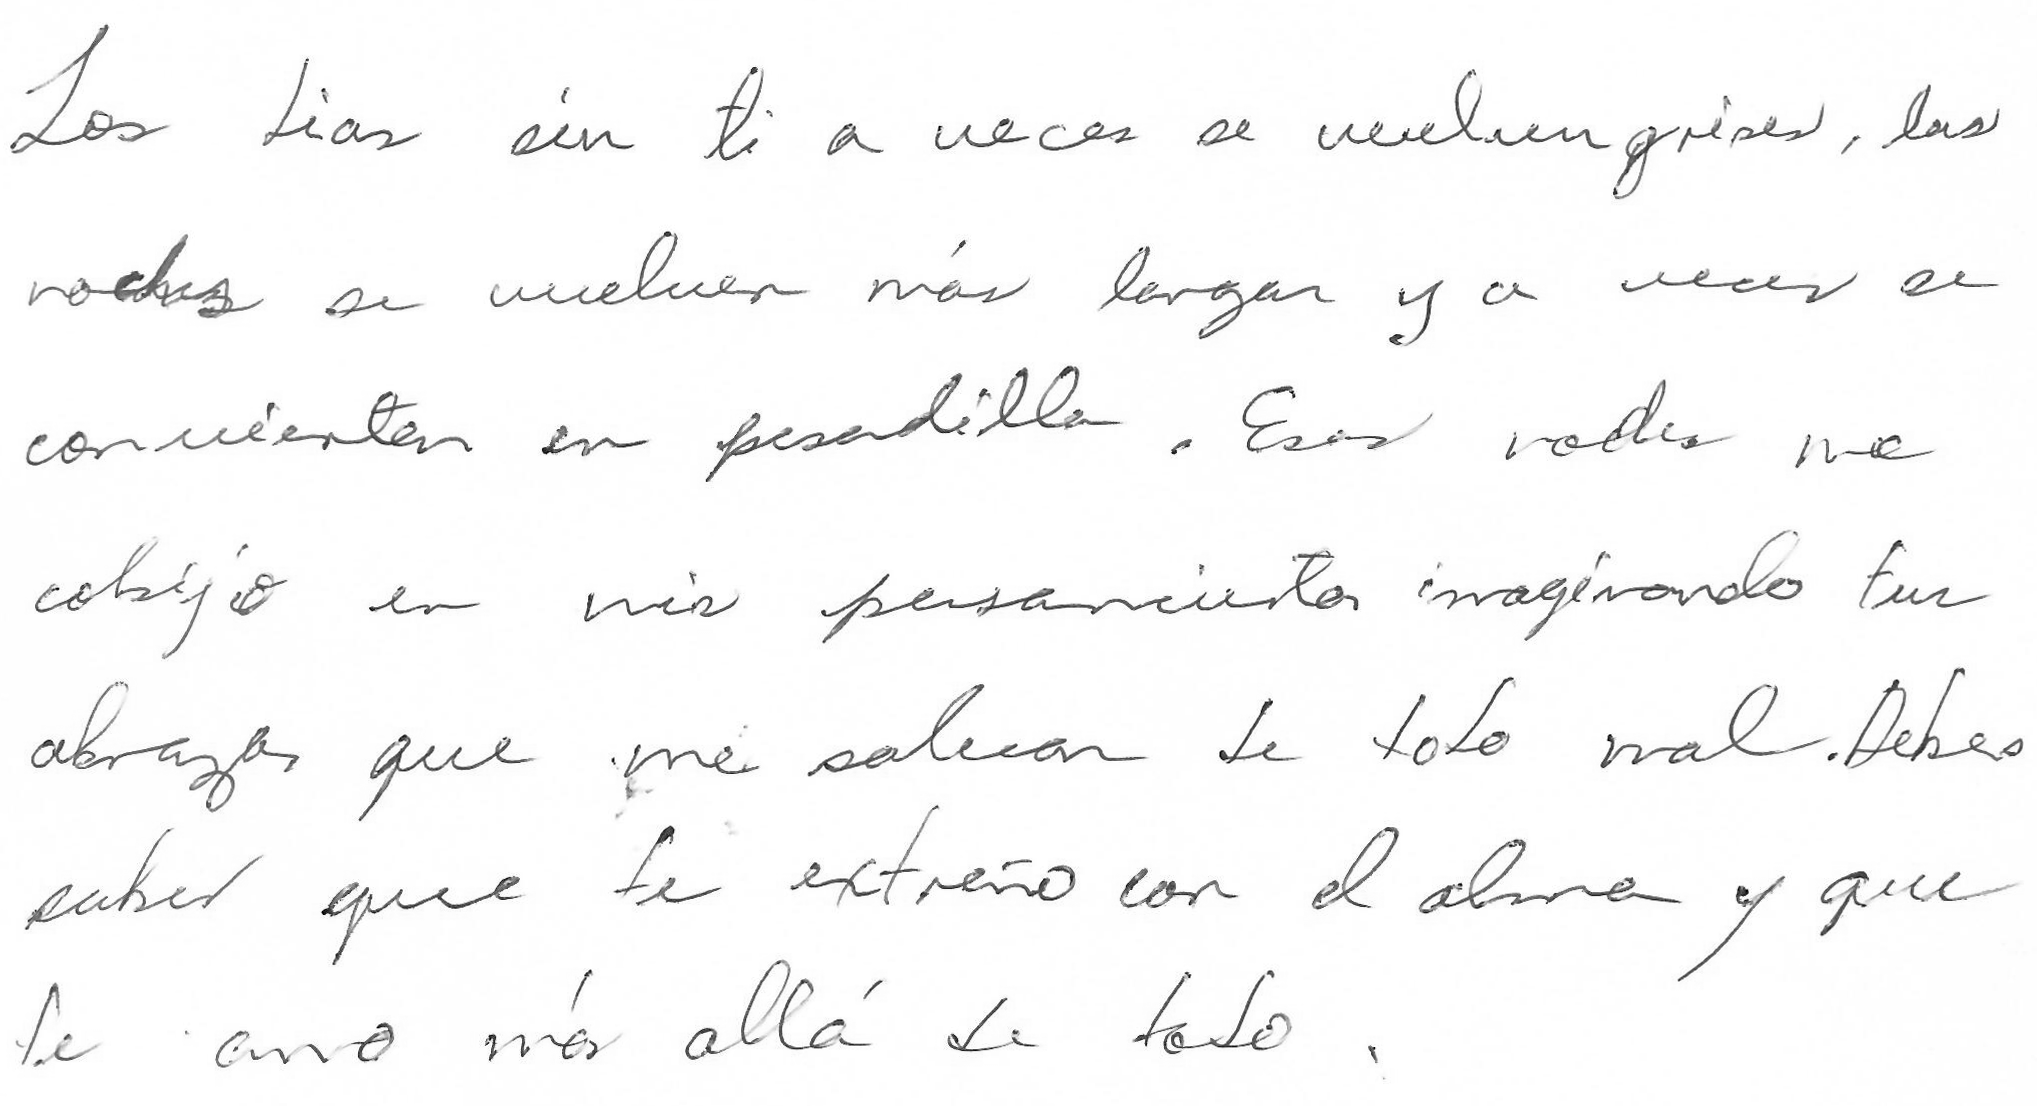 Los dias sin ti a veces se vuelven grises, las
noches se vuelven más largas y a veces se
convierten en pesadilla. Esas noches me
cobijo en mis pensamientos imaginando tus
abrazos que me salvan de todo mal. Debes
saber que te extraño con el alma y que
te amo más allá de todo.